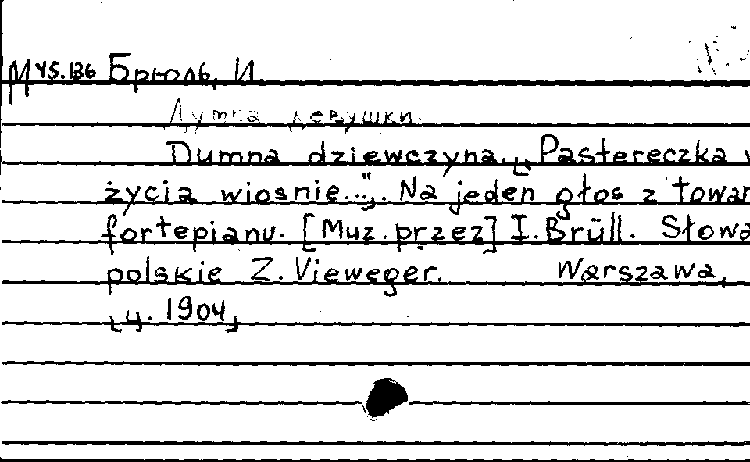 М 45.136 Брюль, И.
Думка девушки.
Dumna dziewczyna. „Pastereczka w
życia wiosnie...". Na jeden głos z towar
fortepianu. [Muz. przez] I. Brüll. Słowa
polskie Z. Vieweger. Warszawa,
[ц. 1904]